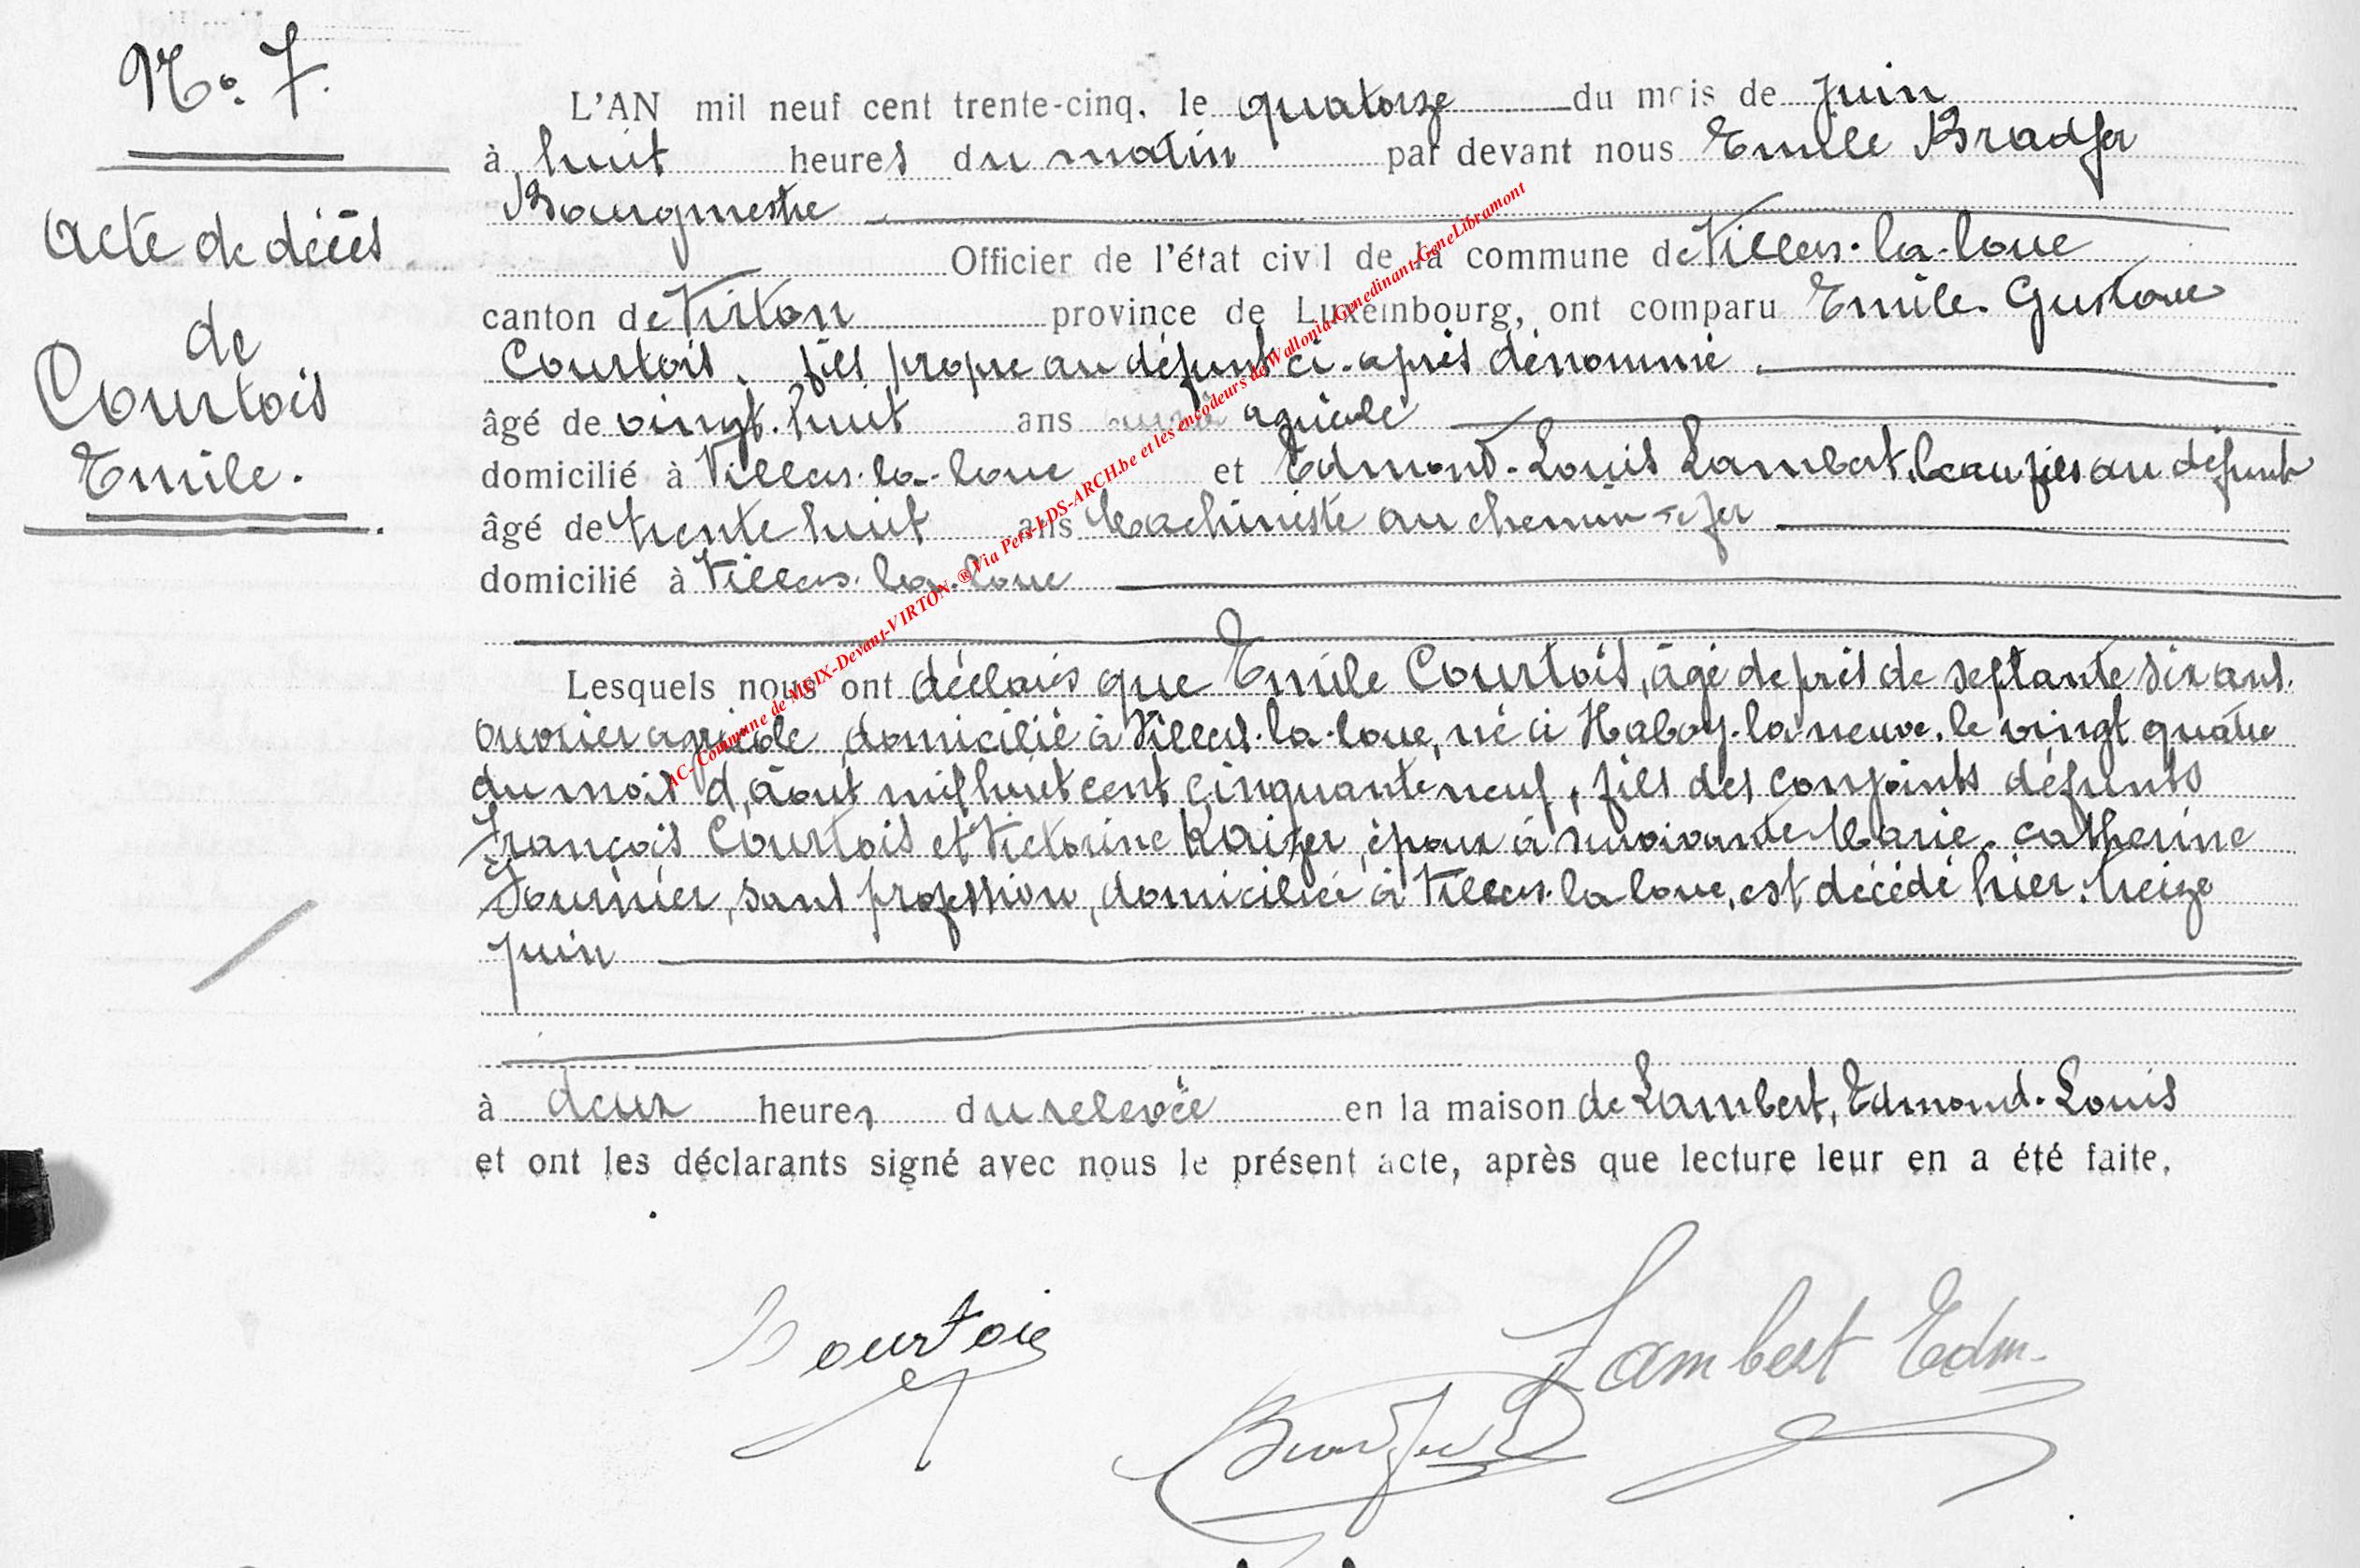 No. 7.
Acte de décès
de
Courtois
Emile.
L'AN mil neuf cent trente-cinq, le quatorze du mois de Juin
à huit heures du matin par devant nous Emile Bradfer
Bourgmestre
Officier de l'état civil de la commune de Villers-la-loue
canton de Virton province de Luxembourg, ont comparu Emile-Gustave
Courtois, fils propre au défunt ci-après dénommé
âgé de vingt-huit ans agricole
domicilié à Villers-la-loue et Edmond-Louis Lambert, beau fils au défunt
âgé de trente huit ans Machiniste au chemin de fer
domicilié à Villers-la-loue
Lesquels nous ont déclaré que Emile Courtois, âgé de près de septante six ans.
ouvrier agricole, domicilié à Villers-la-loue, né à Habay-la-neuve, le vingt quatre
du mois d'août mil huit cent cinquante neuf, fils des conjoints défunts
François Courtois et Victorine Kaizer, époux à survivante Marie-Catherine
Fournier, sans profession, domiciliée à Villers-la-loue, est décédé hier, treize
juin
à deux heures du relevée en la maison de Lambert, Edmond-Louis
et ont les déclarants signé avec nous le présent acte, après que lecture leur en a été faite.
Courtois
Lambert Edm.
Bradfer
AC- Commune de MEIX-Devant-VIRTON ® Via Pers-LDS-ARCH.be et les encodeurs de Wallonia-Genedinant-GeneLibramont